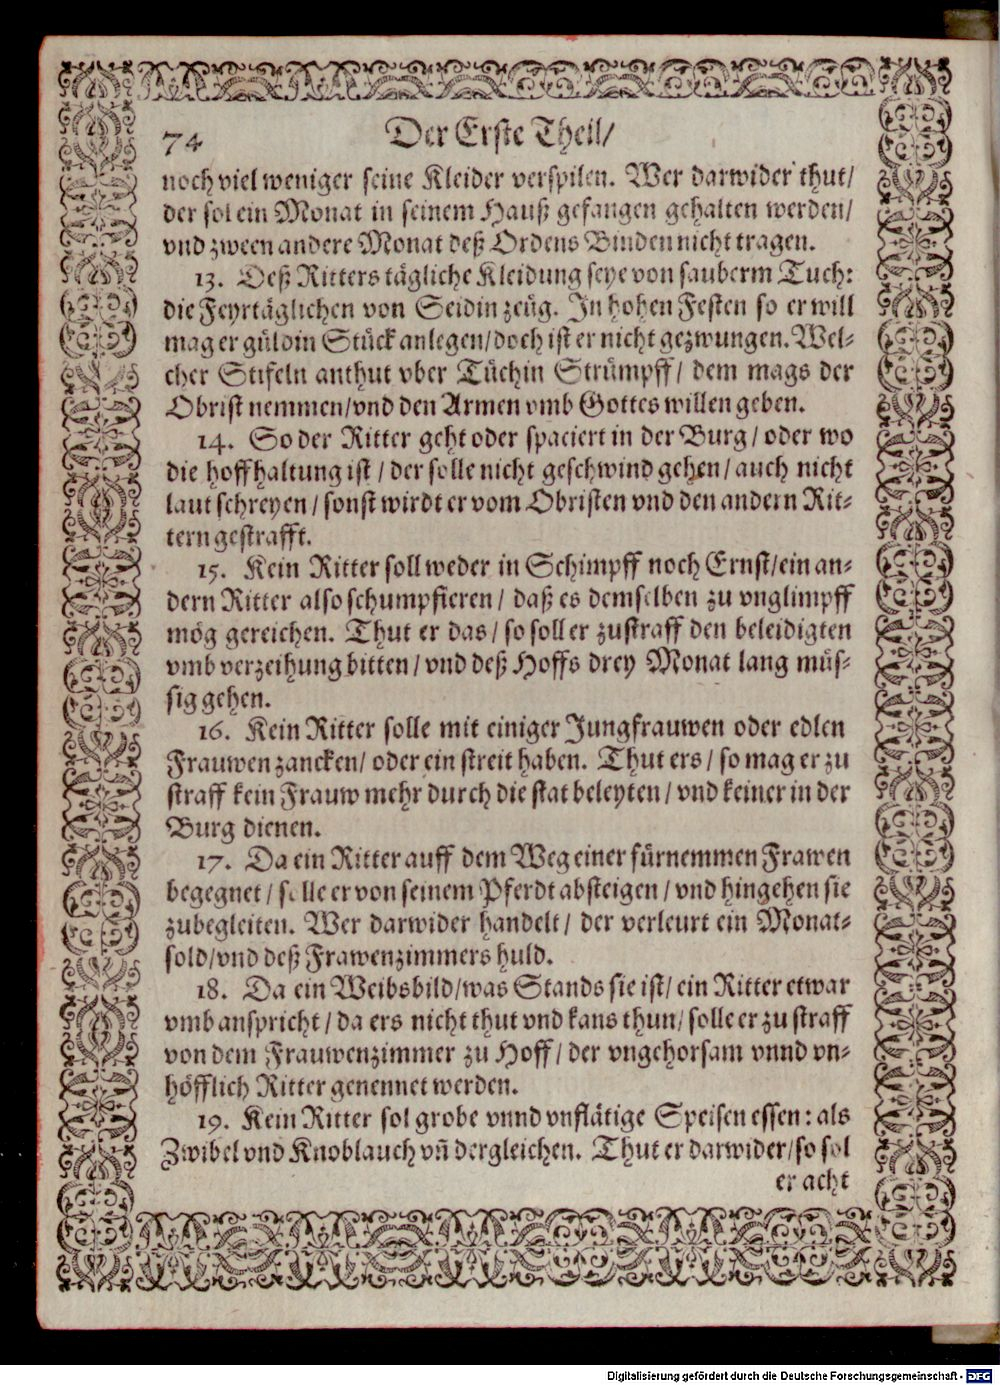 74 Der Erste Theil/
noch viel weniger seine Kleider verspilen. Wer darwider thut/
der sol ein Monat in seinem Hauß gefangen gehalten werden/
vnd zween andere Monat deß Ordens Binden nicht tragen.
13. Deß Ritters tägliche Kleidung seye von sauberm Tuch:
die Feyrtäglichen von Seidin zeüg. In hohen Festen so er will
mag er güldin Stück anlegen/doch ist er nicht gezwungen. Wel-
cher Stifeln anthut vber Tüchin Strümpff/ dem mags der
Obrist nemmen/vnd den Armen vmb Gottes willen geben.
14. So der Ritter geht oder spaciert in der Burg/ oder wo
die hoffhaltung ist/ der solle nicht geschwind gehen/ auch nicht
laut schreyen/ sonst wirdt er vom Obristen vnd den andern Rit-
tern gestrafft.
15. Kein Ritter soll weder in Schimpff noch Ernst/ein an-
dern Ritter also schumpfieren/ daß es demselben zu vnglimpff
mög gereichen. Thut er das/ so soll er zustraff den beleidigten
vmb verzeihung bitten/ vnd deß Hoffs drey Monat lang müs-
sig gehen.
16. Kein Ritter solle mit einiger Jungfrauwen oder edlen
Frauwen zancken/ oder ein streit haben. Thut ers/ so mag er zu
straff kein Frauw mehr durch die stat beleyten/ vnd keiner in der
Burg dienen.
17. Da ein Ritter auff dem Weg einer fürnemmen Frawen
begegnet/ solle er von seinem Pferdt absteigen/ vnd hingehen sie
zubegleiten. Wer darwider handelt/ der verleurt ein Monat-
sold/vnd deß Frawenzimmers huld.
18. Da ein Weibsbild/was Stands sie ist/ ein Ritter etwar
vmb anspricht/ da ers nicht thut vnd kans thun/ solle er zu straff
von dem Frauwenzimmer zu Hoff/ der vngehorsam vnnd vn-
höfflich Ritter genennet werden.
19. Kein Ritter sol grobe vnnd vnflätige Speisen essen: als
Zwibel vnd Knoblauch vñ dergleichen. Thut er darwider/so sol
er acht
Digitalisierung gefördert durch die Deutsche Forschungsgemeinschaft - DFG